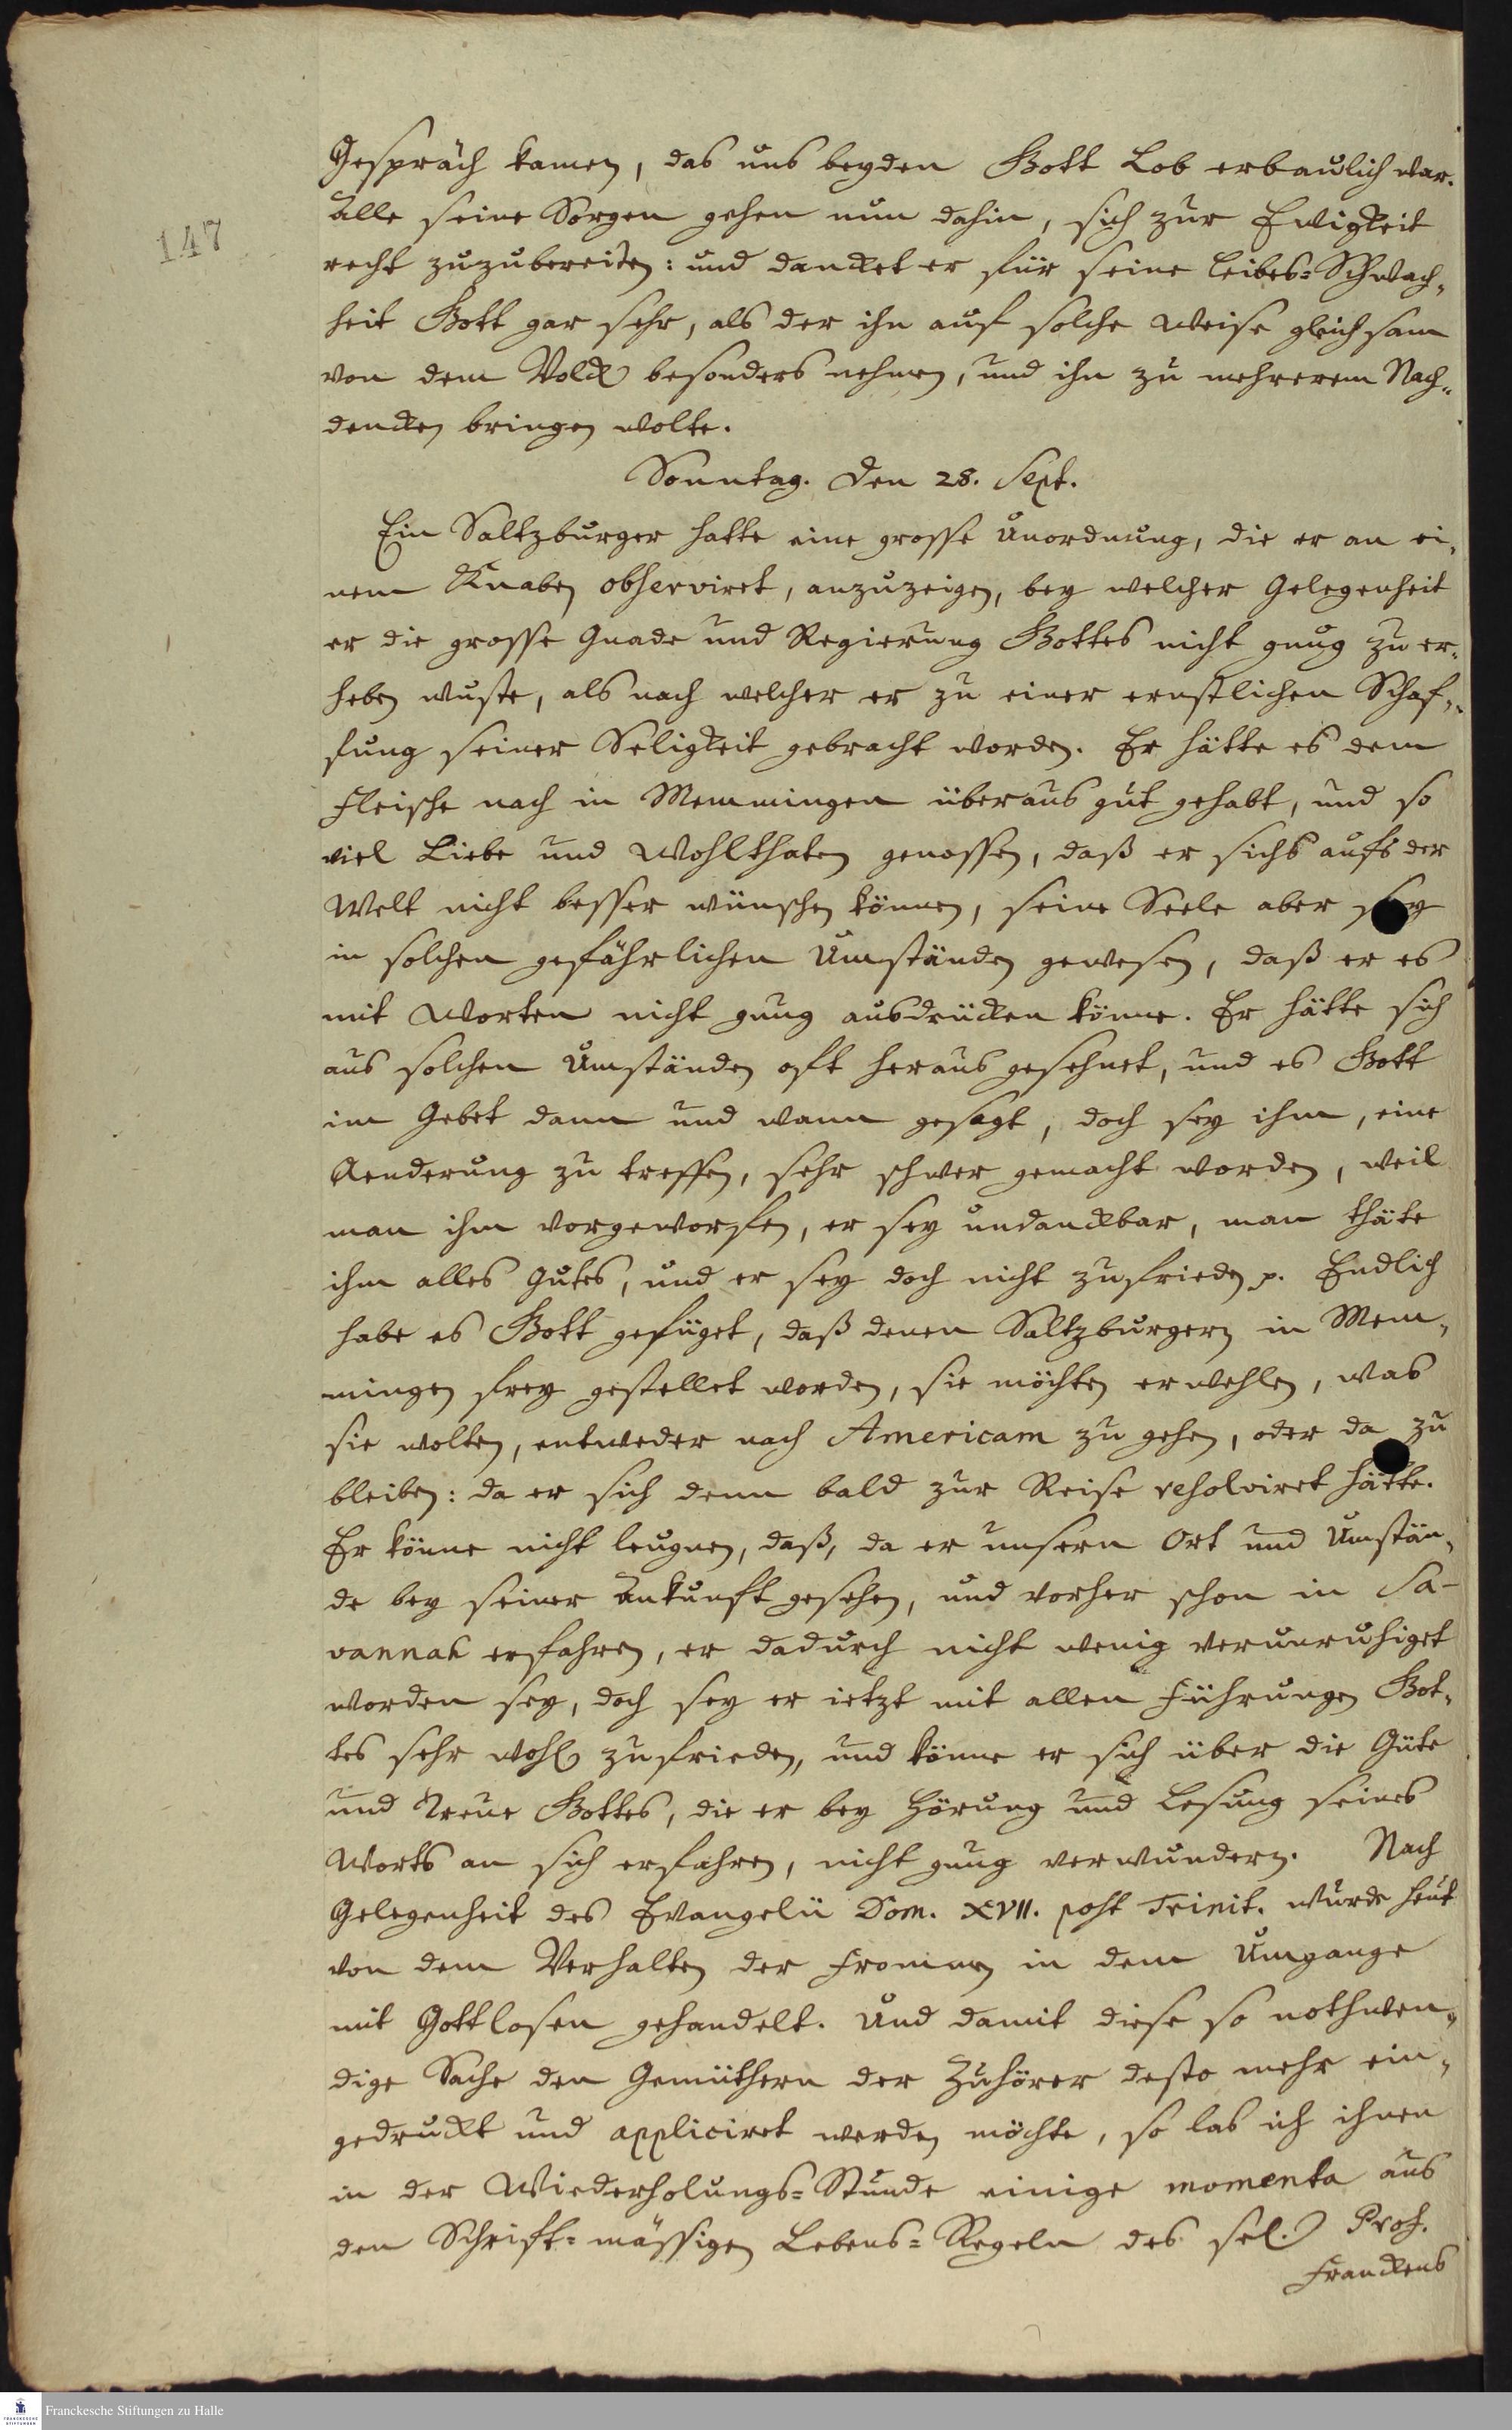 147
Gespräch kamen, das uns beyden Gott Lob erbaulich war.
Alle seine Sorgen gehen nun dahin, sich zur Ewigkeit
recht zuzubereiten: und dancket er für seine Leibes-Schwach-
heit Gott gar sehr, als der ihn auf solche Weise gleichsam
von dem Volck besonders nehmen, und ihn zu mehrerem Nach-
dencken bringen wolte.
Sonntag. den 28. Sept.
Ein Saltzburger hatte eine grosse Unordnung, die er an ei-
nem Knaben observiret, anzuzeigen, bey welcher Gelegenheit
er die grosse Gnade und Regierung Gottes nicht gnug zu er-
heben wuste, als nach welcher er zu einer ernstlichen Schaf-
fung seiner Seligkeit gebracht worden. Er hätte es dem
Fleische nach in Memmingen überaus gut gehabt, und so
viel Liebe und Wohlthaten genossen, daß er sichs aufs der
Welt nicht besser wünschen können, seine Seele aber sey
in solchen gefährlichen Umständen gewesen, daß er es
mit Worten nicht gnug ausdrücken könne. Er hätte sich
aus solchen Umständen oft heraus gesehnet, und es Gott
im Gebet dann und wann gesagt, doch sey ihm, eine
Aenderung zu treffen, sehr schwer gemacht worden, weil
man ihm vorgeworfen, er sey undanckbar, man thäte
ihm alles Gutes, und er sey doch nicht zufrieden p. Endlich
habe es Gott gefüget, daß denen Saltzburgern in Mem-
mingen frey gestellet worden, sie möchten erwehlen, was
sie wolten, entweder nach Americam zu gehen, oder da zu
bleiben: da er sich denn bald zur Reise resolviret hätte.
Er könne nicht leugnen, daß, da er unsern Ort und Umstän-
de bey seiner Ankunft gesehen, und vorher schon in Sa-
vannah erfahren, er dadurch nicht wenig verunruhiget
worden sey, doch sey er ietzt mit allen Führungen Got-
tes sehr wohl zufrieden, und könne er sich über die Güte
und Treue Gottes, die er bey Hörung und Lesung seines
Worts an sich erfahren, nicht gnug verwundern. Nach
Gelegenheit des Evangelii Dom. XVII. post Trinit. wurde heut
von dem Verhalten der Frommen in dem Umgange
mit Gottlosen gehandelt. Und damit diese so nothwen-
dige Sache den Gemüthern der Zuhörer desto mehr ein-
gedruckt und appliciret werden möchte, so las ich ihnen
in der Wiederholungs-Stunde einige momenta aus
den Schrift-mässigen Lebens-Regeln des sel. Prof.
Franckens
Franckesche Stiftungen zu Halle